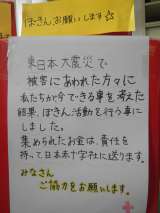 ぼきん、お願いします☆
東日本大震災で
被害にあわれた方々に
私たちが今できる事を考えた
結果、ぼきん活動を行う事に
しました。
集められたお金は、責任を
持って日本赤十字社に送ります。
みなさん
ご協力をお願いします。